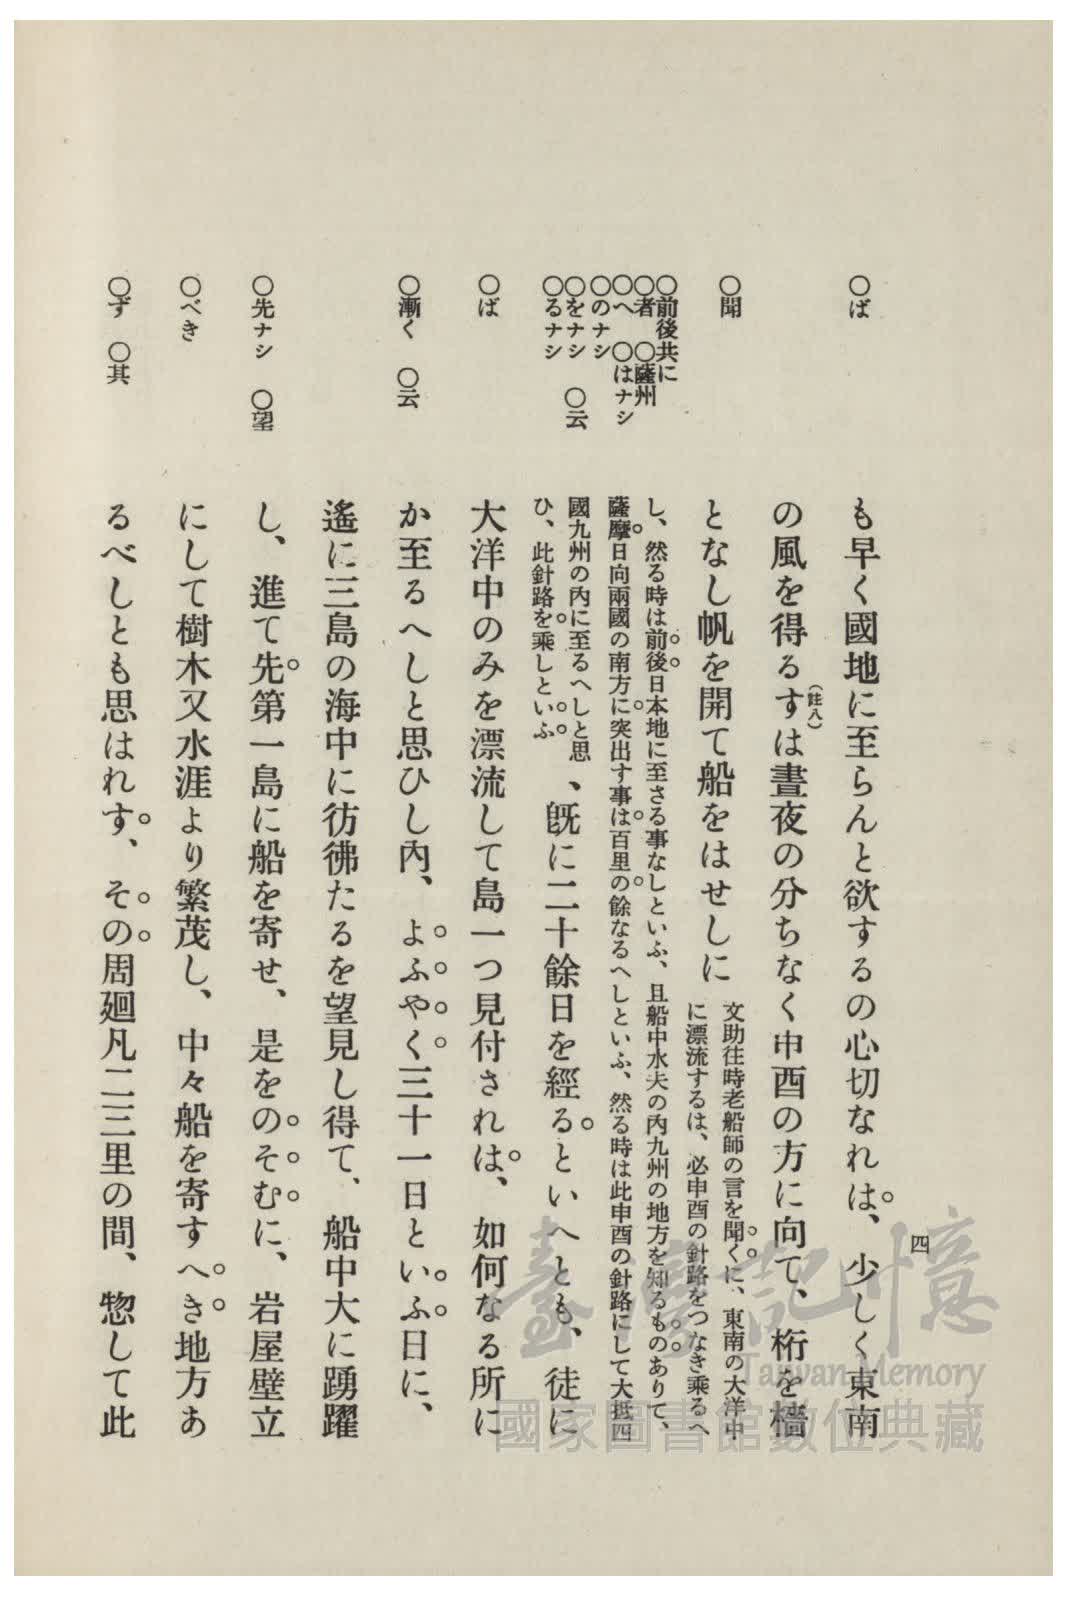 四
も早く國地に至らんと欲するの心切なれは、少しく東南
の風を得るすは晝夜の分ちなく申酉の方に向て、桁を檣
(註八)
となし帆を開て船をはせしに
文助往時老船師の言を聞くに、東南の大洋中
に漂流するは、必申酉の針路をつなき乘るへ
し、然る時は前後日本地に至さる事なしといふ、且船中水夫の內九州の地方を知るものありて、
薩摩日向兩國の南方に突出す事は百里の餘なるへしといふ、然る時は此申酉の針路にして大抵四
國九州の內に至るへしと思
ひ、此針路を乘しといふ
、旣に二十餘日を經るといへとも、徒に
大洋中のみを漂流して島一つ見付されは、如何なる所に
か至るへしと思ひし內、よふやく三十一日といふ日に、
遙に三島の海中に彷彿たるを望見し得て、船中大に踴躍
し、進て先第一島に船を寄せ、是をのそむに、岩屋壁立
にして樹木又水涯より繁茂し、中々船を寄すへき地方あ
るべしとも思はれす、その周廻凡二三里の間、惣して此
○ば
○聞
○前後共に
○者　○薩州
○へ　○はナシ
○のナシ
○をナシ　○云
○るナシ
○ば
○漸く　○云
○先ナシ　○望
○べき
○ず　○其
臺灣記憶
Taiwan Memory
國家圖書館數位典藏